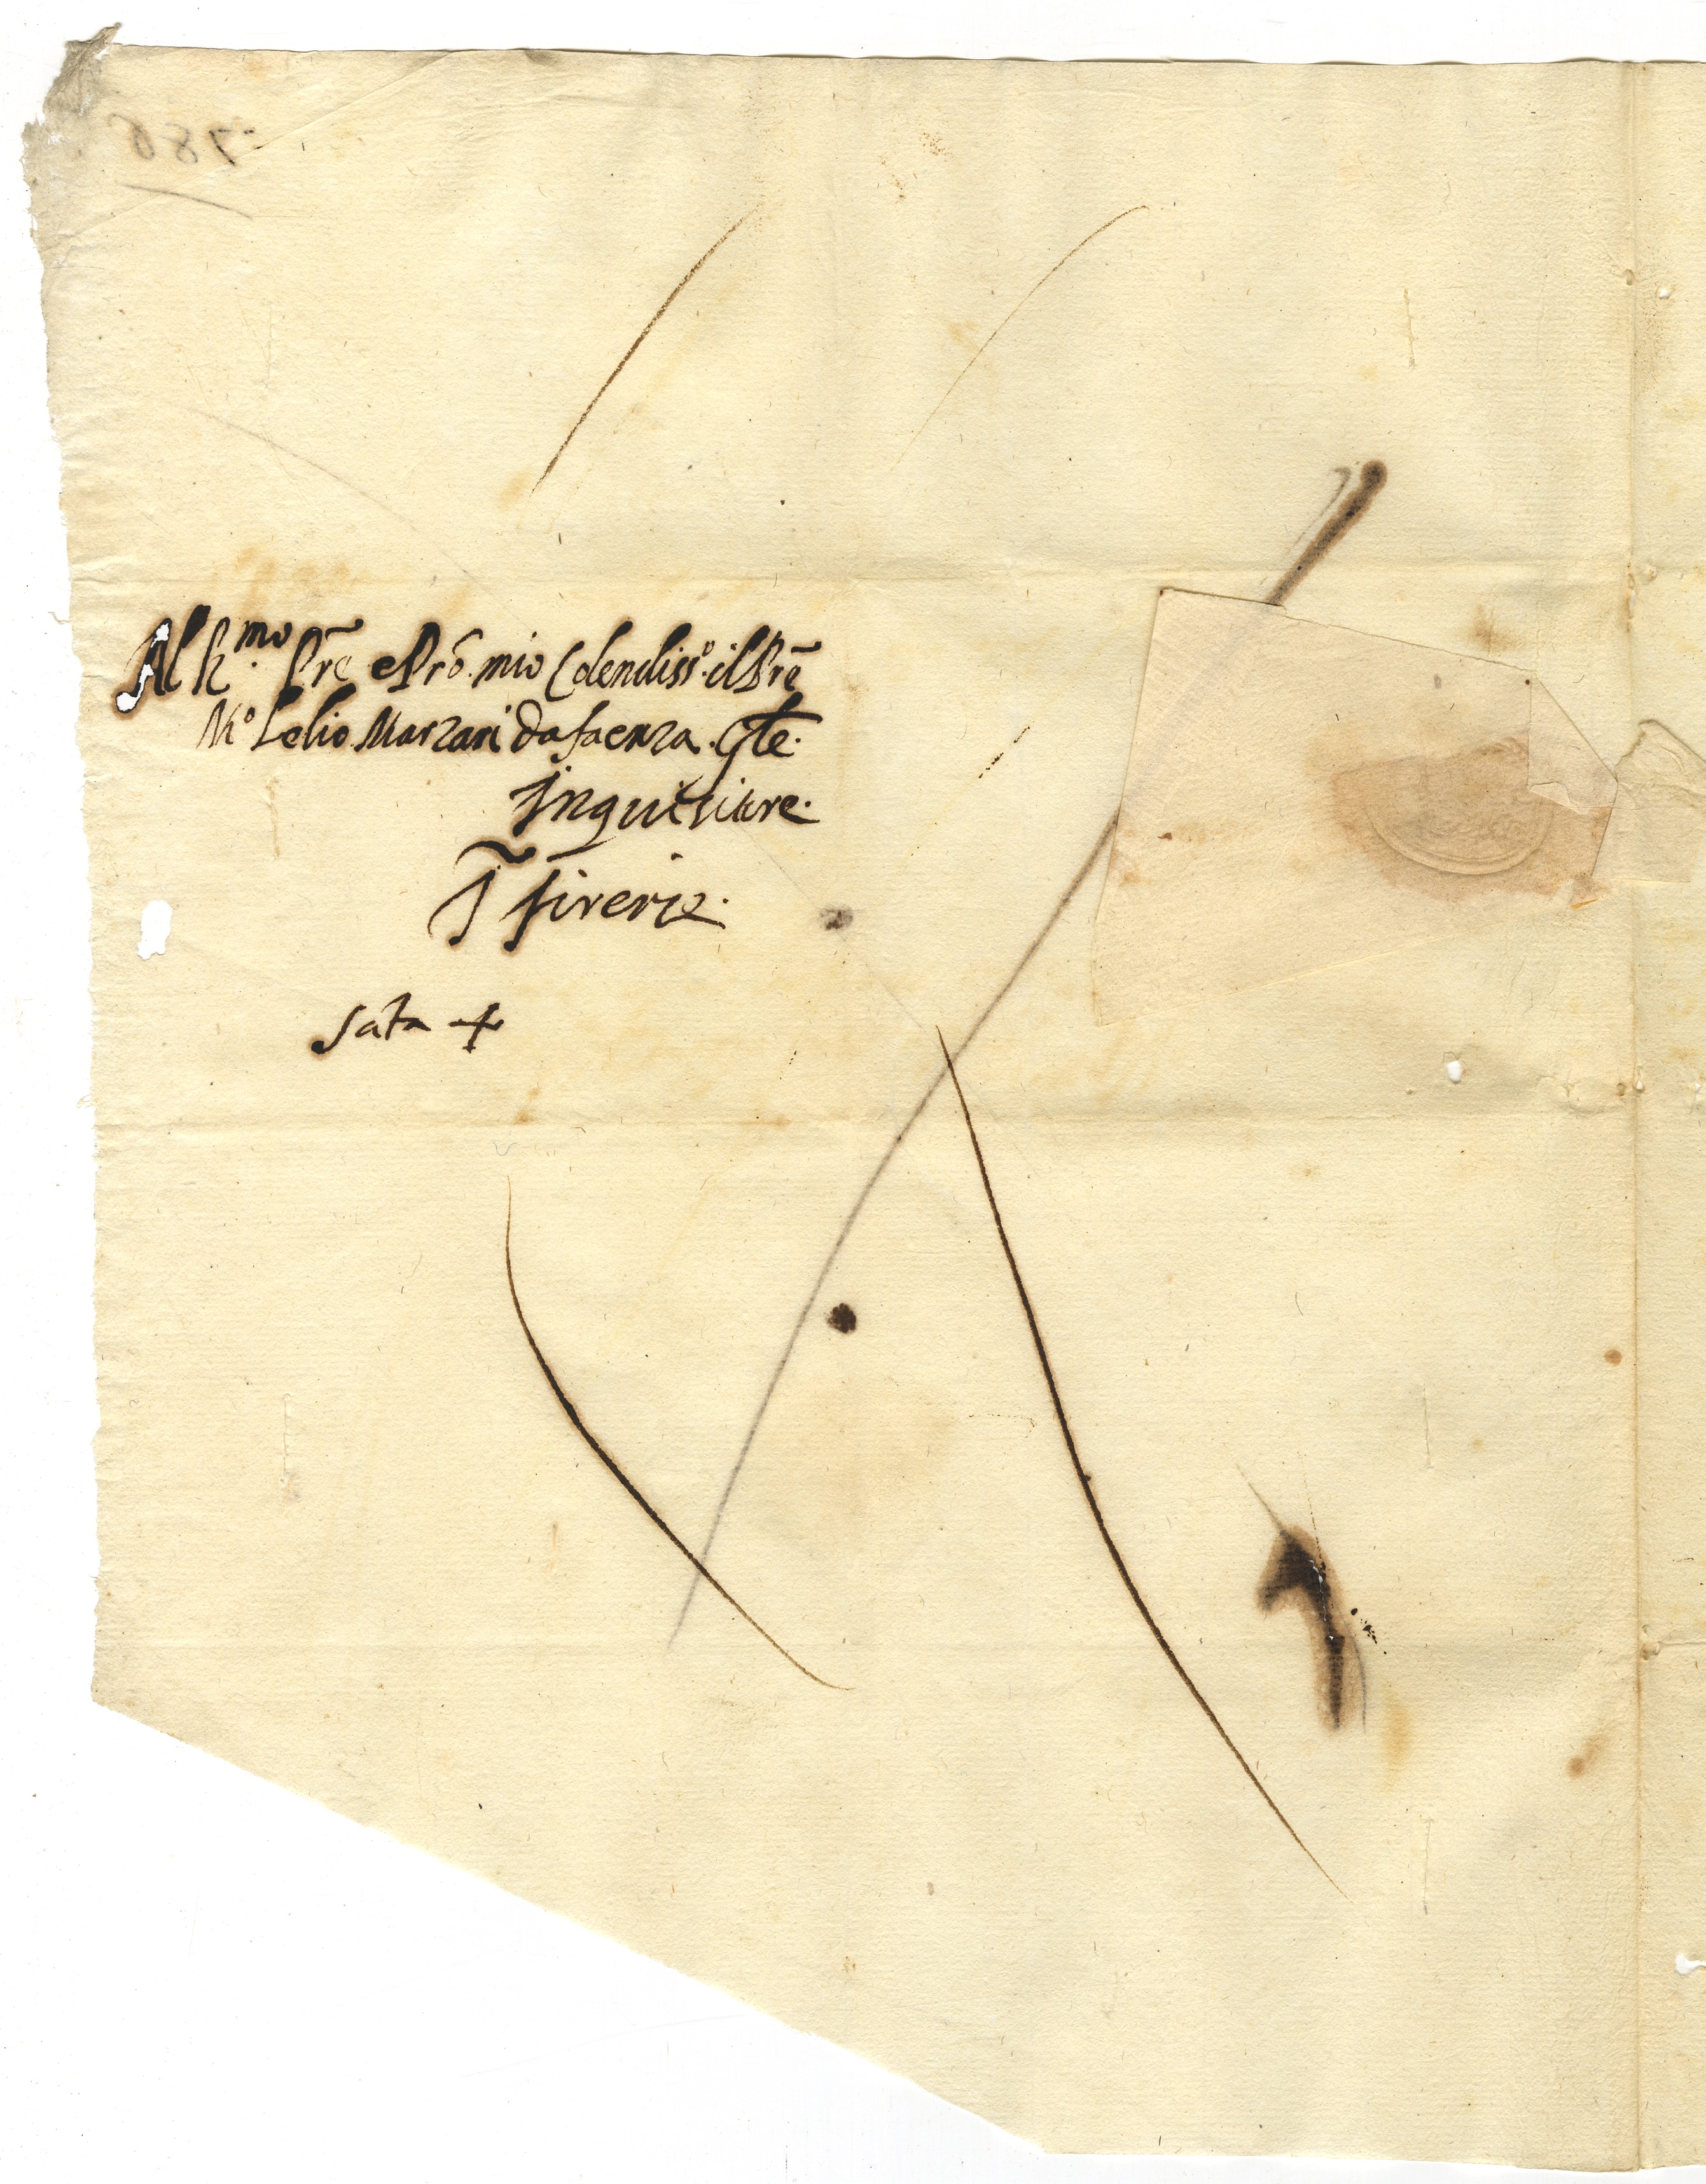 Al R.mo Pre e Prõ. mio Colendiss.o il Pre
M.o Lelio Marzari da faenza. Gle.
Inquisitore.
Firenze.
Sata +